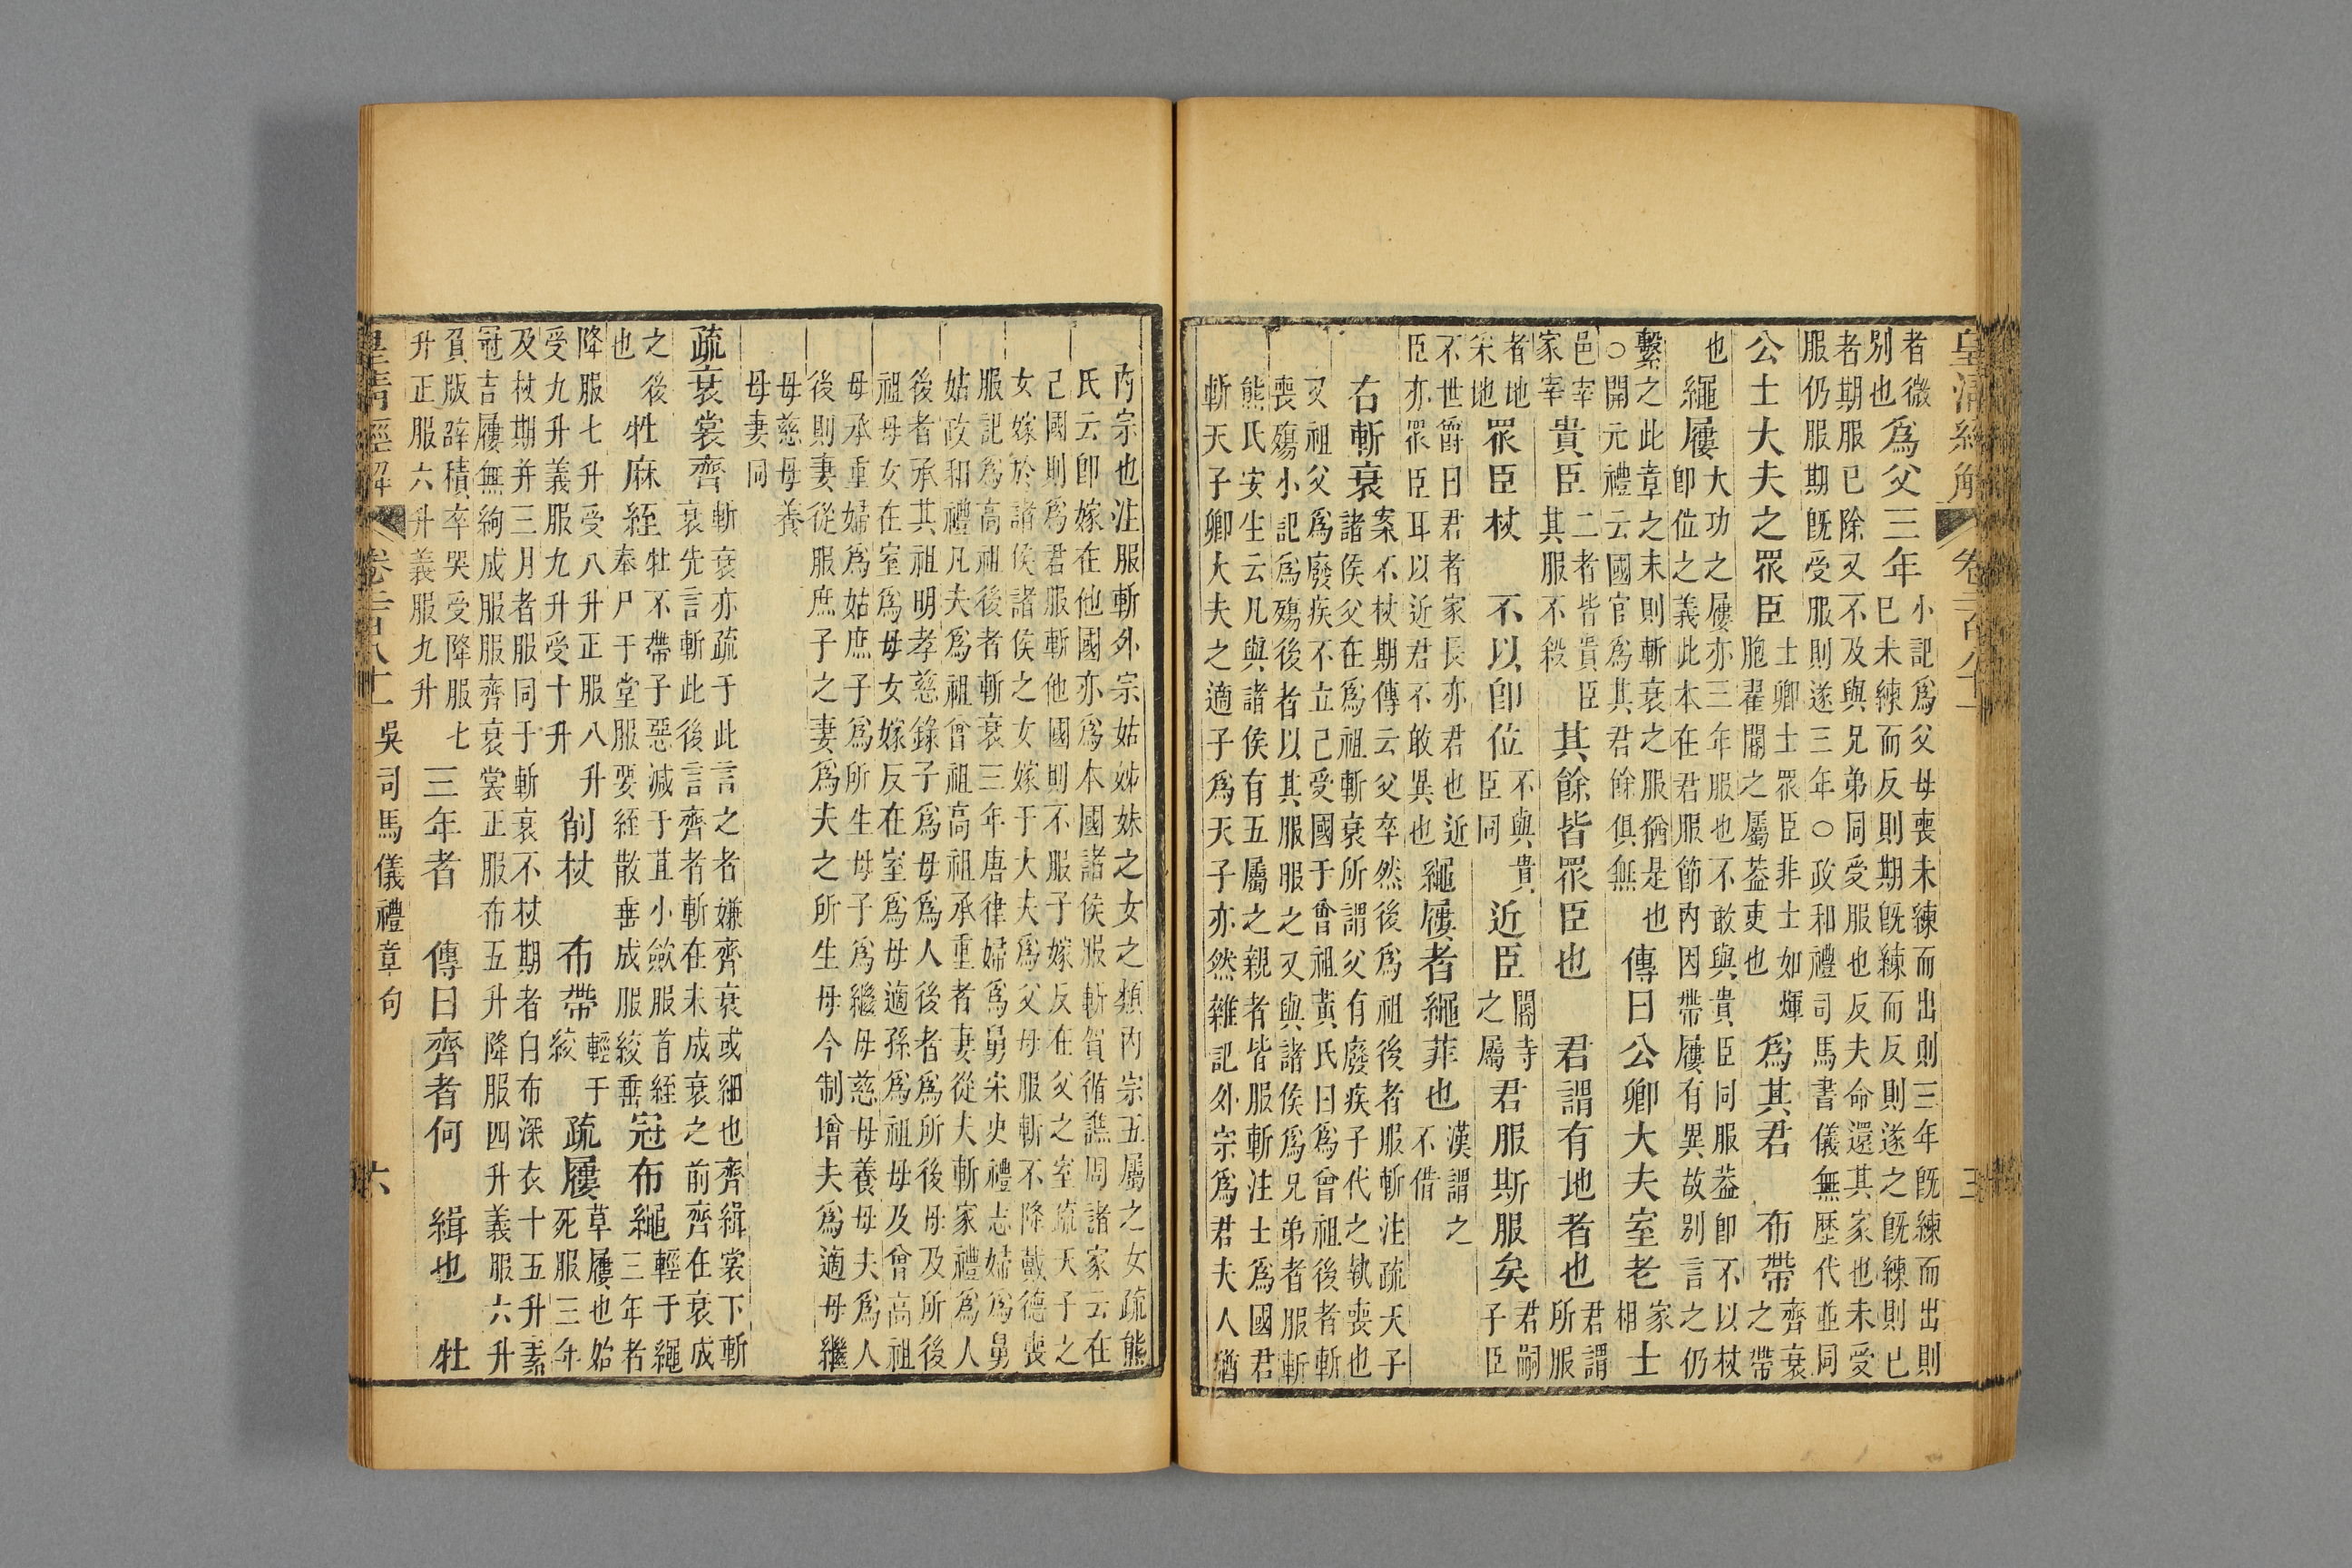 皇清經解 卷二百八十一
者微
別也
爲父三年
小記爲父母喪未練而出則三年既練而出則
已未練而反則期既練而反則遂之既練則已
者期服已除又不及與兄弟同受服也反夫命還其家也未受
服仍服期既受服則遂三年○政和禮司馬書儀無歷代並同
公士大夫之眾臣
士卿士眾臣非士如煇
胞翟閽之屬葢吏也
爲其君 布帶
齊衰
之帶
也
繩屨
大功之屨亦三年服也不敢與貴臣同服葢卽不以杖
卽位之義此本在君服節內因帶屨有異故別言之仍
繫之此章之末則斬衰之服猶是也
○開元禮云國官爲其君餘俱無
傳曰公卿大夫室老
家
相
士
邑宰
家宰
貴臣
二者皆貴臣
其服不殺
其餘皆眾臣也 君謂有地者也
君謂
所服
者地
宋地
眾臣杖 不以卽位
不與貴
臣同
近臣
閽寺
之屬
君服斯服矣
君嗣
子臣
不世爵曰君者家長亦君也近
臣亦眾臣耳以近君不敢異也
繩屨者繩菲也
漢謂之
不借
右斬衰
案不杖期傳云父卒然後爲祖後者服斬注疏天子
諸侯父在爲祖斬衰所謂父有廢疾子代之執喪也
又祖父爲廢疾不立己受國于曾祖黃氏曰爲曾祖後者斬
喪殤小記爲殤後者以其服服之又與諸侯爲兄弟者服斬
熊氏安生云凡與諸侯有五屬之親者皆服斬注士爲國君
斬天子卿大夫之適子爲天子亦然雜記外宗爲君夫人猶
內宗也注服斬外宗姑姊妹之女之類內宗五屬之女疏熊
氏云卽嫁在他國亦爲本國諸侯服斬賀循譙周諸家云在
己國則爲君服斬他國則不服子嫁反在父之室疏天子之
女嫁於諸侯諸侯之女嫁于大夫爲父母服斬不降戴德喪
服記爲高祖後者斬衰三年唐律婦爲舅宋史禮志婦爲舅
姑政和禮凡夫爲祖曾祖高祖承重者妻從夫斬家禮爲人
後者承其祖明孝慈錄子爲母爲人後者爲所後母及所後
祖母女在室爲母女嫁反在室爲母適孫爲祖母及曾高祖
母承重婦爲姑庶子爲所生母子爲繼母慈母養母夫爲人
後則妻從服庶子之妻爲夫之所生母今制增夫爲適母繼
母慈母養
母妻同
疏衰裳齊
斬衰亦疏于此言之者嫌齊衰或細也齊緝裳下斬
衰先言斬此後言齊者斬在未成衰之前齊在衰成
之後
也
牡麻絰
牡不帶子惡減于苴小斂服首絰
奉尸于堂服要絰散垂成服絞垂
冠布繩
輕于繩
三年者
降服七升受八升正服八升
受九升義服九升受十升
削杖 布帶
輕于
絞
疏屨
草屨也始
死服三年
及杖期并三月者服同于斬衰不杖期者白布深衣十五升素
冠吉屨無絇成服服齊衰裳正服布五升降服四升義服六升
負版辟積卒哭受降服七
升正服六升義服九升
三年者 傳曰齊者何 緝也 牡
皇清經解 卷二百八十一 吳司馬儀禮章句 六